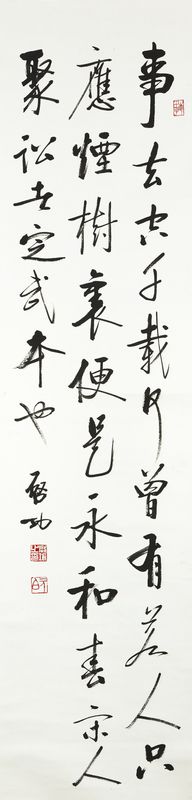 事去空千載何曾有若人只
應煙樹裏便是永和春宋人
聚訟者定武本也 啓功